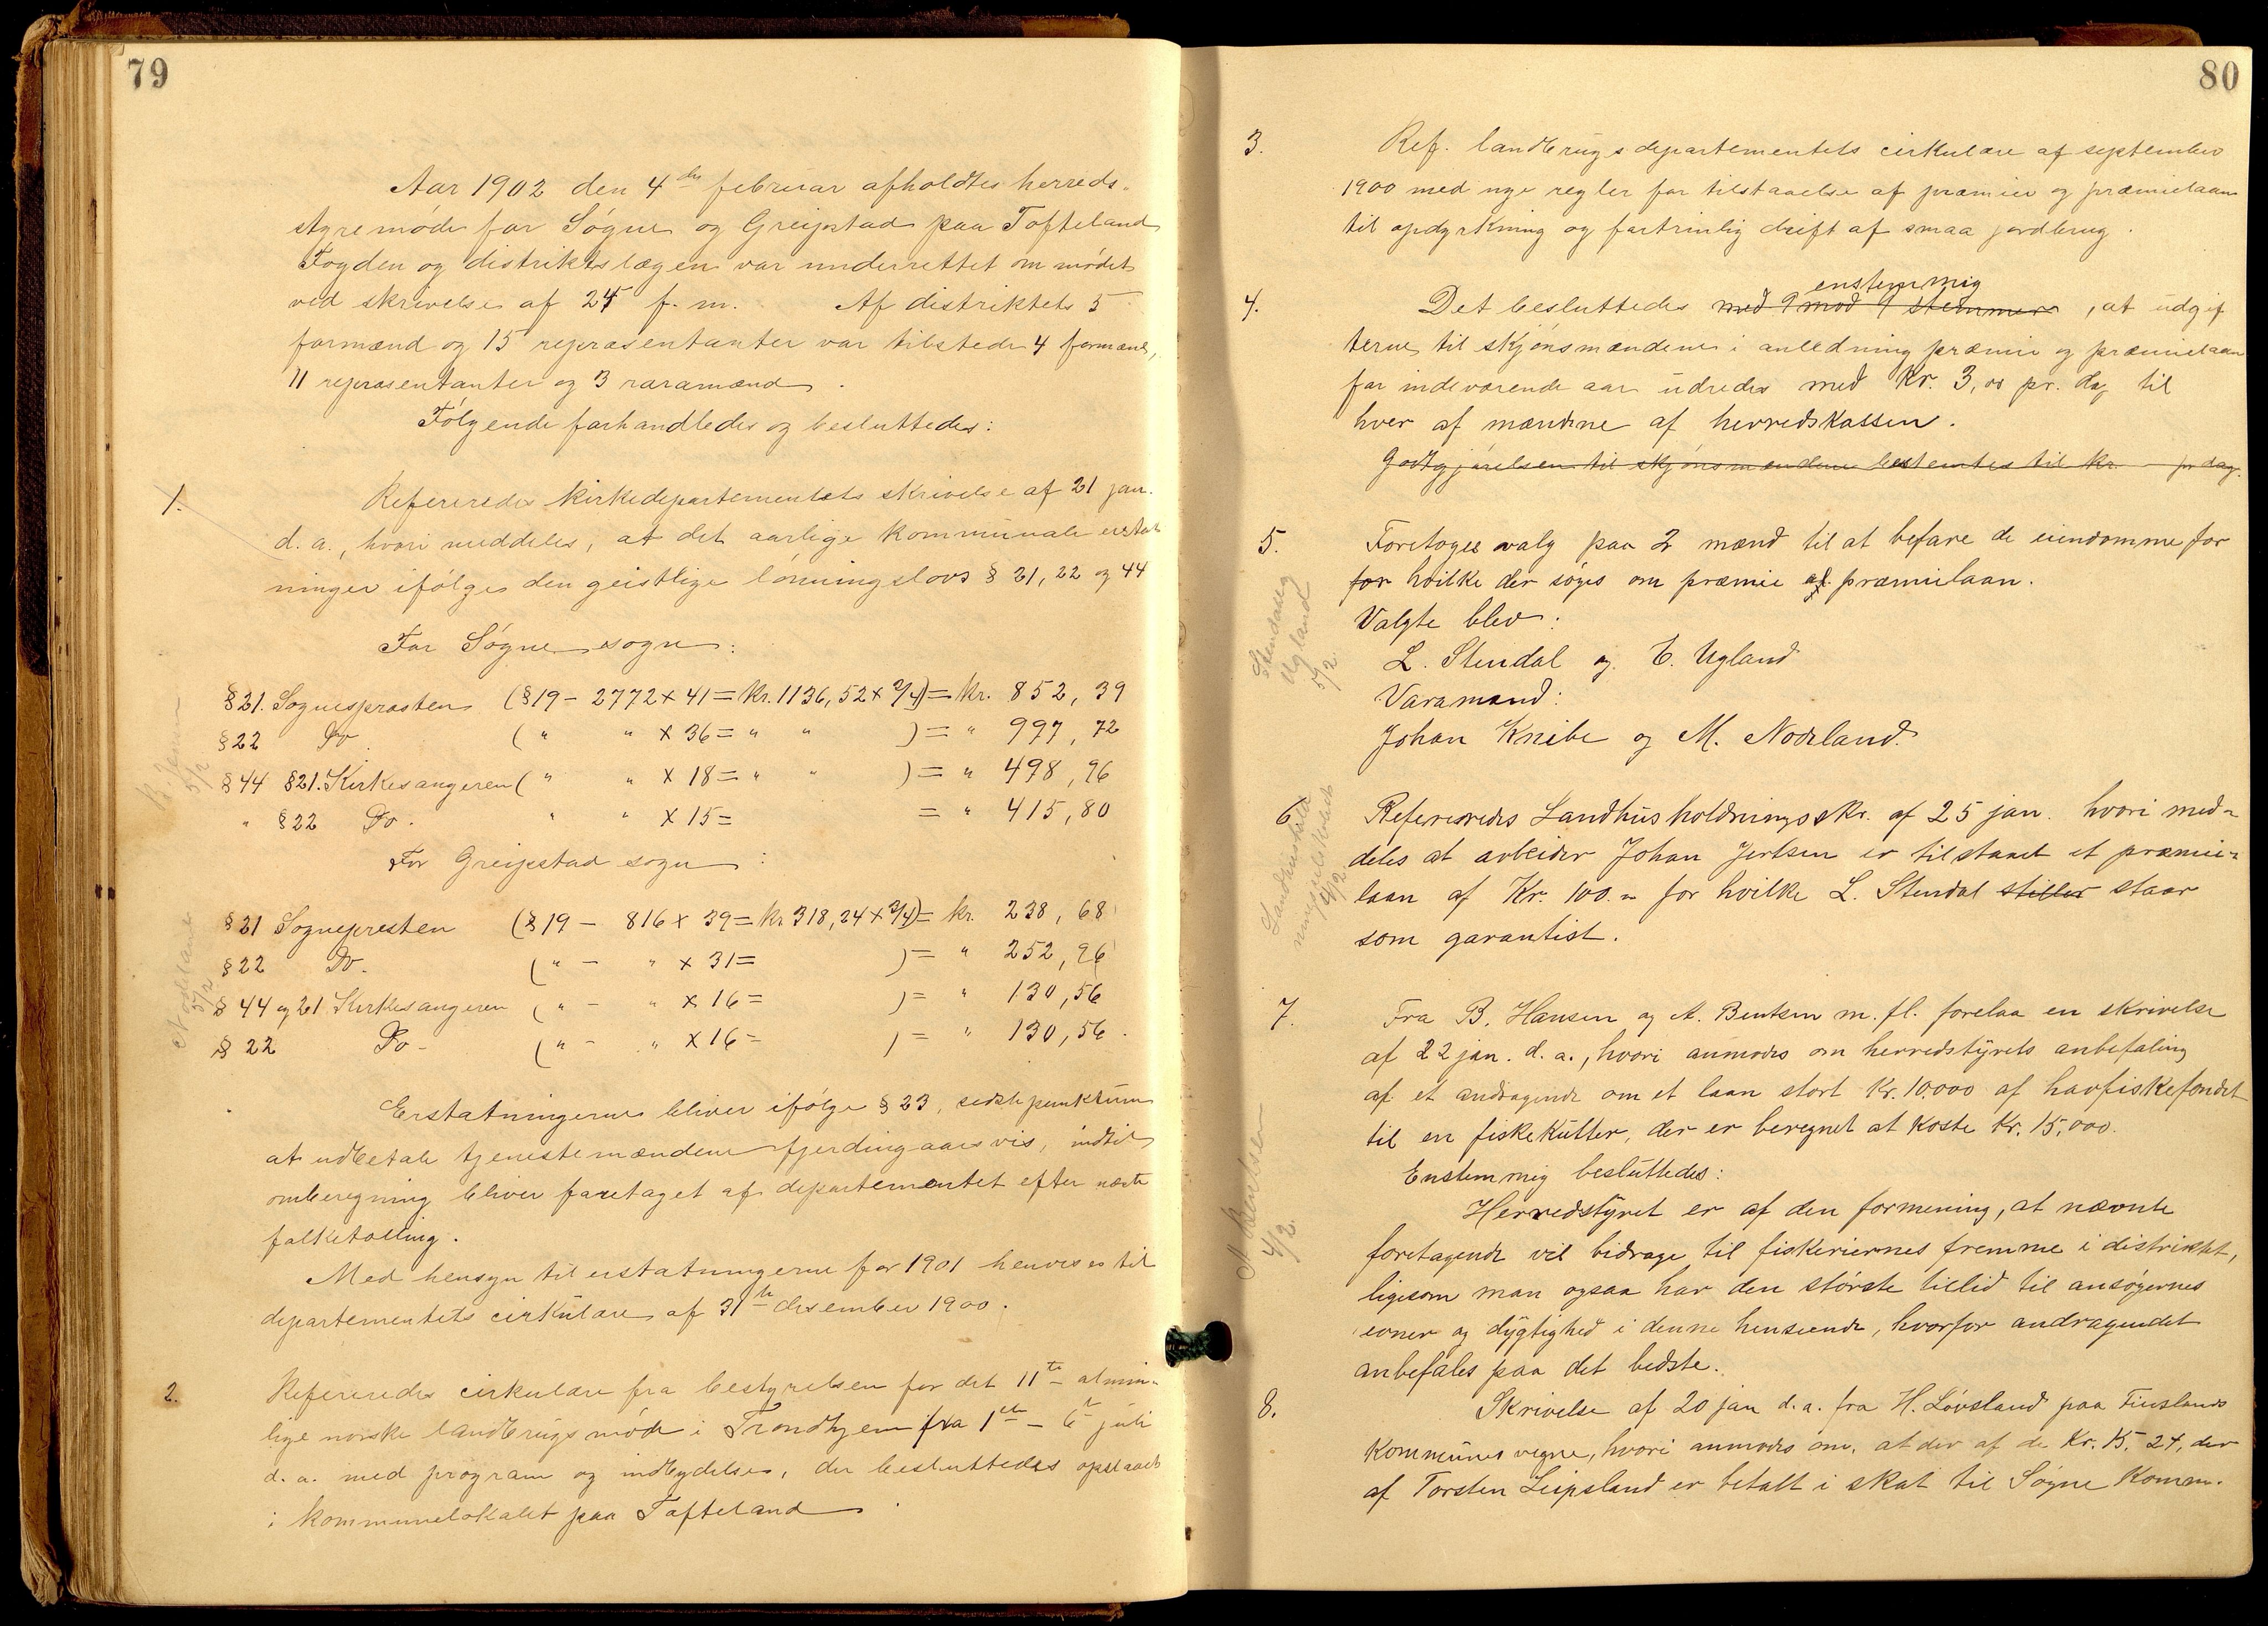 79
Aar 1902 den 4de februar afholdtes herreds-
styremøde for Søgne og Greipstad paa Tofteland
Fogden og distriktslægen var underrettet om mødet
ved skrivelse af 24 f. m. Af distriktets 5
formænd og 15 repræsentanter var tilstede 4 formænd,
11 repræsentanter og 3 varamænd.
Følgende forhandledes og besluttedes:
1. Refereredes kirkedepartementets skrivelse af 21 jan.
d. a., hvori meddeles, at det aarlige kommunale erstat
ninger ifølge den geistlige lønningslovs § 21, 22 og 44
For Søgne sogn:
§21. Sognepræsten (§19 - 2772 × 41 = kr. 1136,52 × 3/4) = kr. 852,39
§22 Do. ( " " × 36 = " " ) = " 997,72
§44 §21. Kirkesangeren ( " " × 18 = " " ) = " 498,96
" §22 Do. " " × 15 = = " 415,80
For Greipstad sogn:
§21 Sognepresten (§19 - 816 × 39 = kr 318,24 × 3/4) = kr. 238,68
§22 Do. ( " - " × 31 = ) = " 252,96
§44 og 21 Kirkesangeren ( " - " × 16 = ) = " 130,56
§22 Do - ( " - " × 16 = ) = " 130,56.
Erstatningerne bliver ifølge § 23, sidste punktum
at udbetale tjenestemændene fjerdingaarsvis, indtil
omberegning bliver foretaget af departementet efter næste
folketælling.
Med hensyn til erstatningerne for 1901 henvises til
departementets cirkulære af 31te desember 1900.
2. Refereredes cirkulære fra bestyrelsen for det 11te almin-
lige norske landbrugsmøde i Trondhjem fra 1ste - 6te juli
d. a. med program og indbydelse, der besluttedes opslaaet
i kommunelokalet paa Tofteland.
80
3. Ref. landbrugsdepartementets cirkulære af september
1900 med nye regler for tilstaaelse af præmier og præmielaan
til opdyrkning og fortrinlig drift af smaa jordbrug.
enstemmig
4. Det besluttedes med 9 mod 9 stemmer, at udgif
terne til skjønsmændene i anledning præmie og præmielaan
for indeværende aar udredes med Kr. 3,00 pr. dag til
hver af mændene af herredskassen.
Godtgjørelsen til skjønsmændene bestemtes til kr. - pr dag.
5. Foretoges valg paa 2 mænd til at befare de eiendomme for
for hvilke der søges om præmie el. præmielaan.
Valgte blev:
L. Stendal og E. Ugland
Varamænd:
Johan Knibe og M. Nodeland.
Stendal og
Ugland
5/2
6 Refereredes Landhusholdningsskr. af 25 jan. hvori med-
deles at arbeider Johan Jertsen er tilstaaet et præmie-
laan af Kr. 100.- for hvilke L. Stendal stiller staar
som garantist.
7. Fra B. Hansen og A. Bentsen m. fl. forelaa en skrivelse
af 22 jan. d. a., hvori anmodes om herredstyrets anbefaling
af et andragende om et laan stort Kr. 10,000 af havfiskefondet
til en fiskekutter, der er beregnet at koste Kr. 15,000.
Enstemmig besluttedes:
Herredstyret er af den formening, at nævnte
foretagende vil bidrage til fiskeriernes fremme i distriktet,
ligesom man ogsaa har den største tillid til ansøgernes
evner og dygtighed i denne henseende, hvorfor andragendet
anbefales paa det bedste.
A Bentsen
4/2.
8. Skrivelse af 20 jan d. a. fra H. Løvsland paa Finslands
kommunes vegne, hvori anmodes om, at der af de Kr. 15,24, der
af Torsten Leipsland er betalt i skat til Søgne Komm.